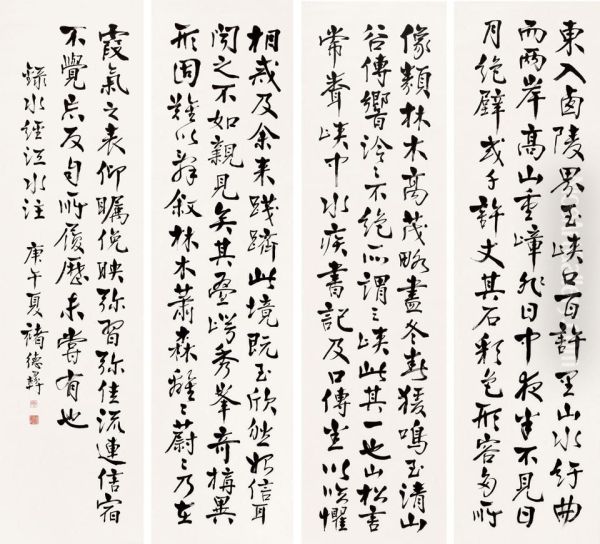 東入西陵界至峽口百許里山水紆曲
而兩岸高山重嶂非日中夜半不見日
月絕壁或千許丈其石彩色形容多所
像類林木高茂略盡冬春猨鳴至清山
谷傳響泠〻不絕所謂三峽此其一也山松言
常聞峽中水疾書記及口傳悉以臨懼
相戒及余來踐躋此境既至欣然始信耳
聞之不如親見矣其疊崿秀峯奇構異
形固難以辭敘林木蕭森離〻蔚〻乃在
霞氣之表仰矚俛映弥習弥佳流連信宿
不覺忘反目所履歷未嘗有也
錄水經江水注 庚午夏褚德彝